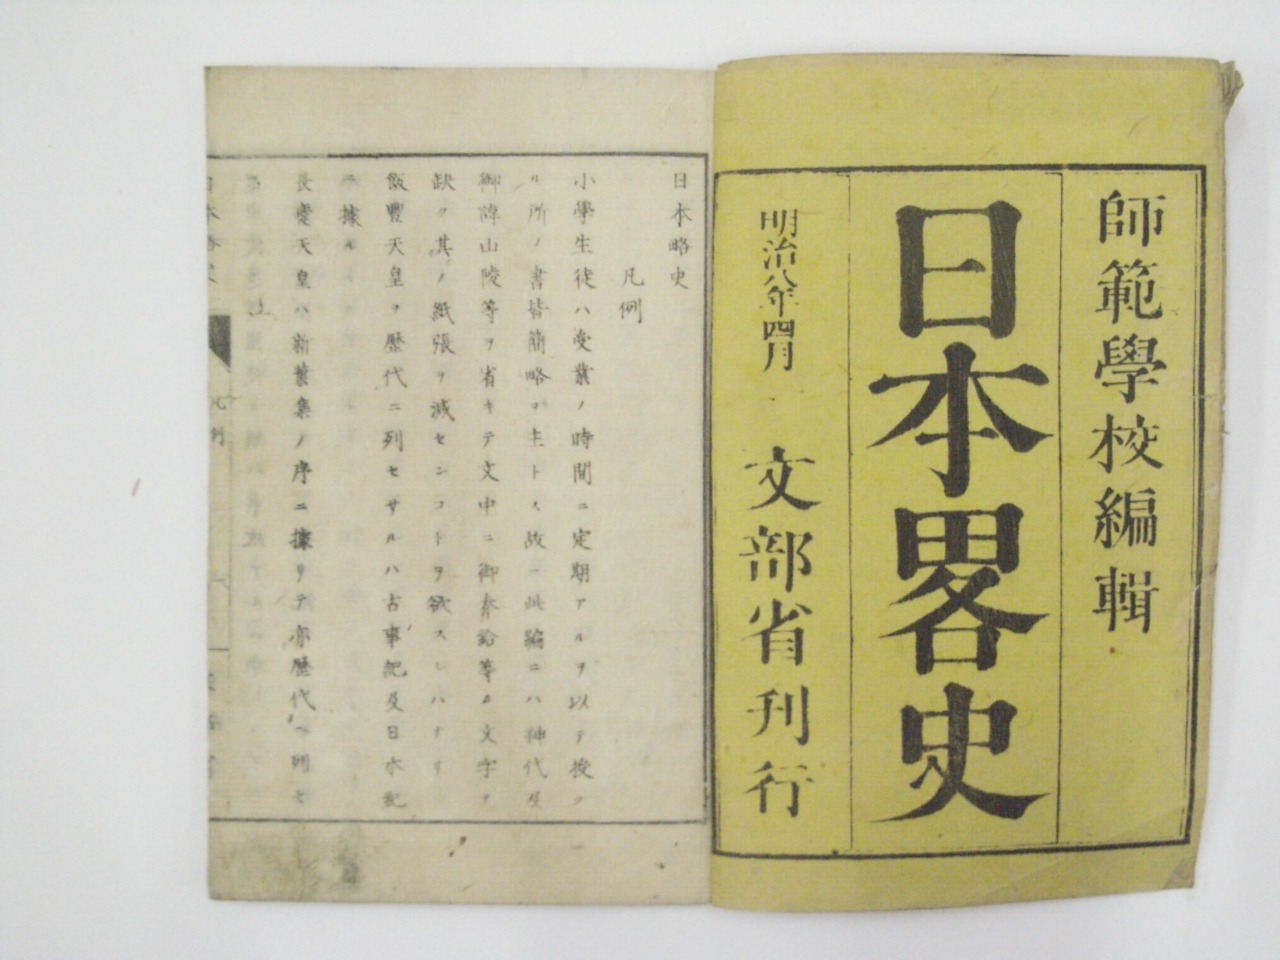 師範學校編輯
日本畧史
明治八年四月 文部省刊行
日本略史
凡例
小學生徒ハ受業ノ時間ニ定期アルヲ以テ授ク
ル所ノ書皆簡略ヲ主トス故ニ此編ニハ神代及
御諱山陵等ヲ省キテ文中ニ御奉給等ノ文字ヲ
缺ク其ノ紙張ヲ減センコトヲ欲スレハナリ
飯豐天皇ヲ歴代ニ列セサルハ古事記及日本紀
ニ據ル
長慶天皇ハ新葉集ノ序ニ據リテ亦歴代ニ列セ
凡例